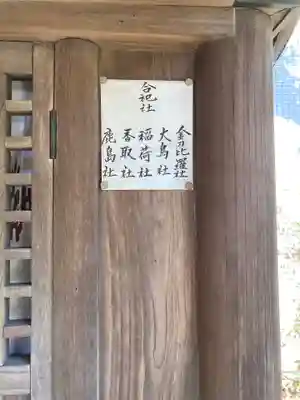 合祀社
金毘羅社
大鳥社
稲荷社
香取社
鹿島社